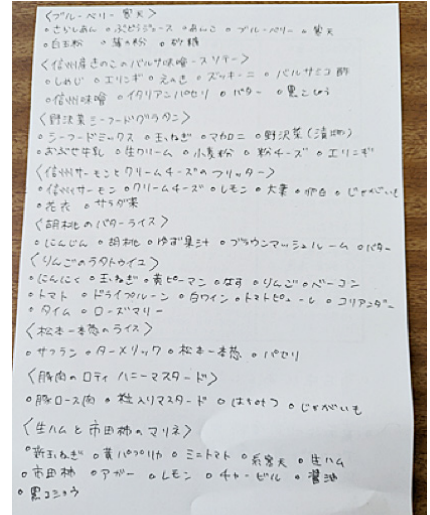 〈ブルーベリー寒天〉
○さらしあん ○ぶどうジュース ○あんこ ○ブルーベリー ○寒天
○白玉粉 ○粉 ○砂糖
〈信州産きのこのバルサ味噌ースソテー〉
○しめじ ○エリンギ ○えのき ○ズッキーニ ○バルサミコ酢
○信州味噌 ○イタリアンパセリ ○バター ○黒こしょう
〈野沢菜シーフードグラタン〉
○シーフードミックス ○玉ねぎ ○マカロニ ○野沢菜(漬物)
○おぶせ牛乳 ○生クリーム ○小麦粉 ○粉チーズ ○エリンギ
〈信州サーモンとクリームチーズのフリッター〉
○信州サーモン ○クリームチーズ ○レモン ○大葉 ○卵白 ○じゃがいも
○花衣 ○サラダ菜
〈胡桃のバターライス〉
○にんじん ○胡桃 ○ゆず果汁 ○ブラウンマッシュルーム ○バター
〈りんごのラタトゥイユ〉
○にんにく ○玉ねぎ ○黄ピーマン ○なす ○りんご ○ベーコン
○トマト ○ドライプルーン ○白ワイン ○トマトピューレ ○コリアンダー
○タイム ○ローズマリー
〈松本一本葱のライス〉
○サフラン ○ターメリック ○松本一本葱 ○パセリ
〈豚肉のロティ ハニーマスタード〉
○豚ロース肉 ○粒入りマスタード ○はちみつ ○じゃがいも
〈生ハムと市田柿のマリネ〉
○新玉ねぎ ○黄パプリカ ○ミニトマト ○糸寒天 ○生ハム
○市田柿 ○アガー ○レモン ○チャービル ○醤油
○黒コショウ